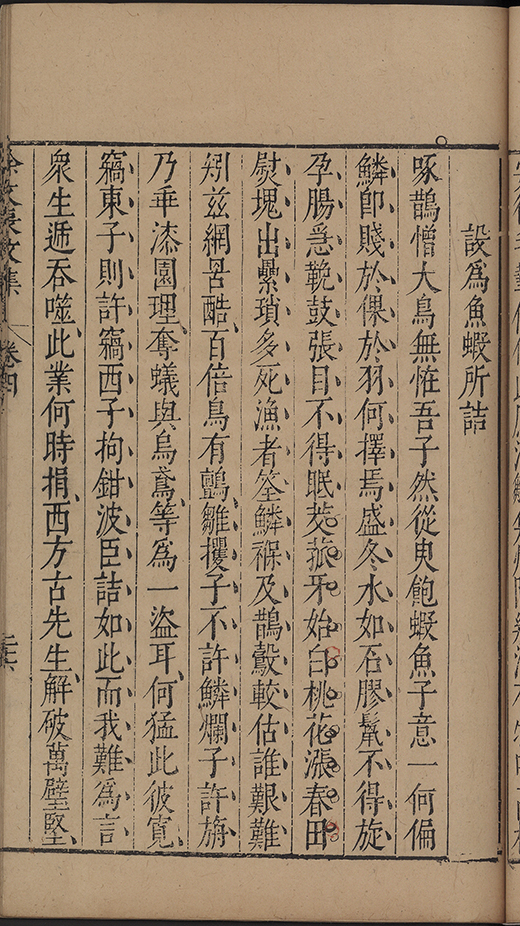 設為魚蝦所詰
啄鵲憎大鳥無恠吾子然從臾飽蝦魚子意一何偏
鱗卽賤於倮於羽何擇焉盛冬水如石膠鬛不得旋
孕腸急輓鼓張目不得眠茭菰牙始白桃花漲春田
熨塊出纍瑣多死漁者筌鱗褓及鵲鷇較估誰艱難
矧茲網罟酷百倍鳥有鸇雛攫子不許鱗爛子許旃
乃乖漆園理奪蟻與烏鳶等為一盜耳何猛此彼寬
竊東子則許竊西子拘鉗波臣詰如此而我難為言
衆生遞吞噬此業何時捐西方古先生解破萬壁堅
徐文長文集
卷四